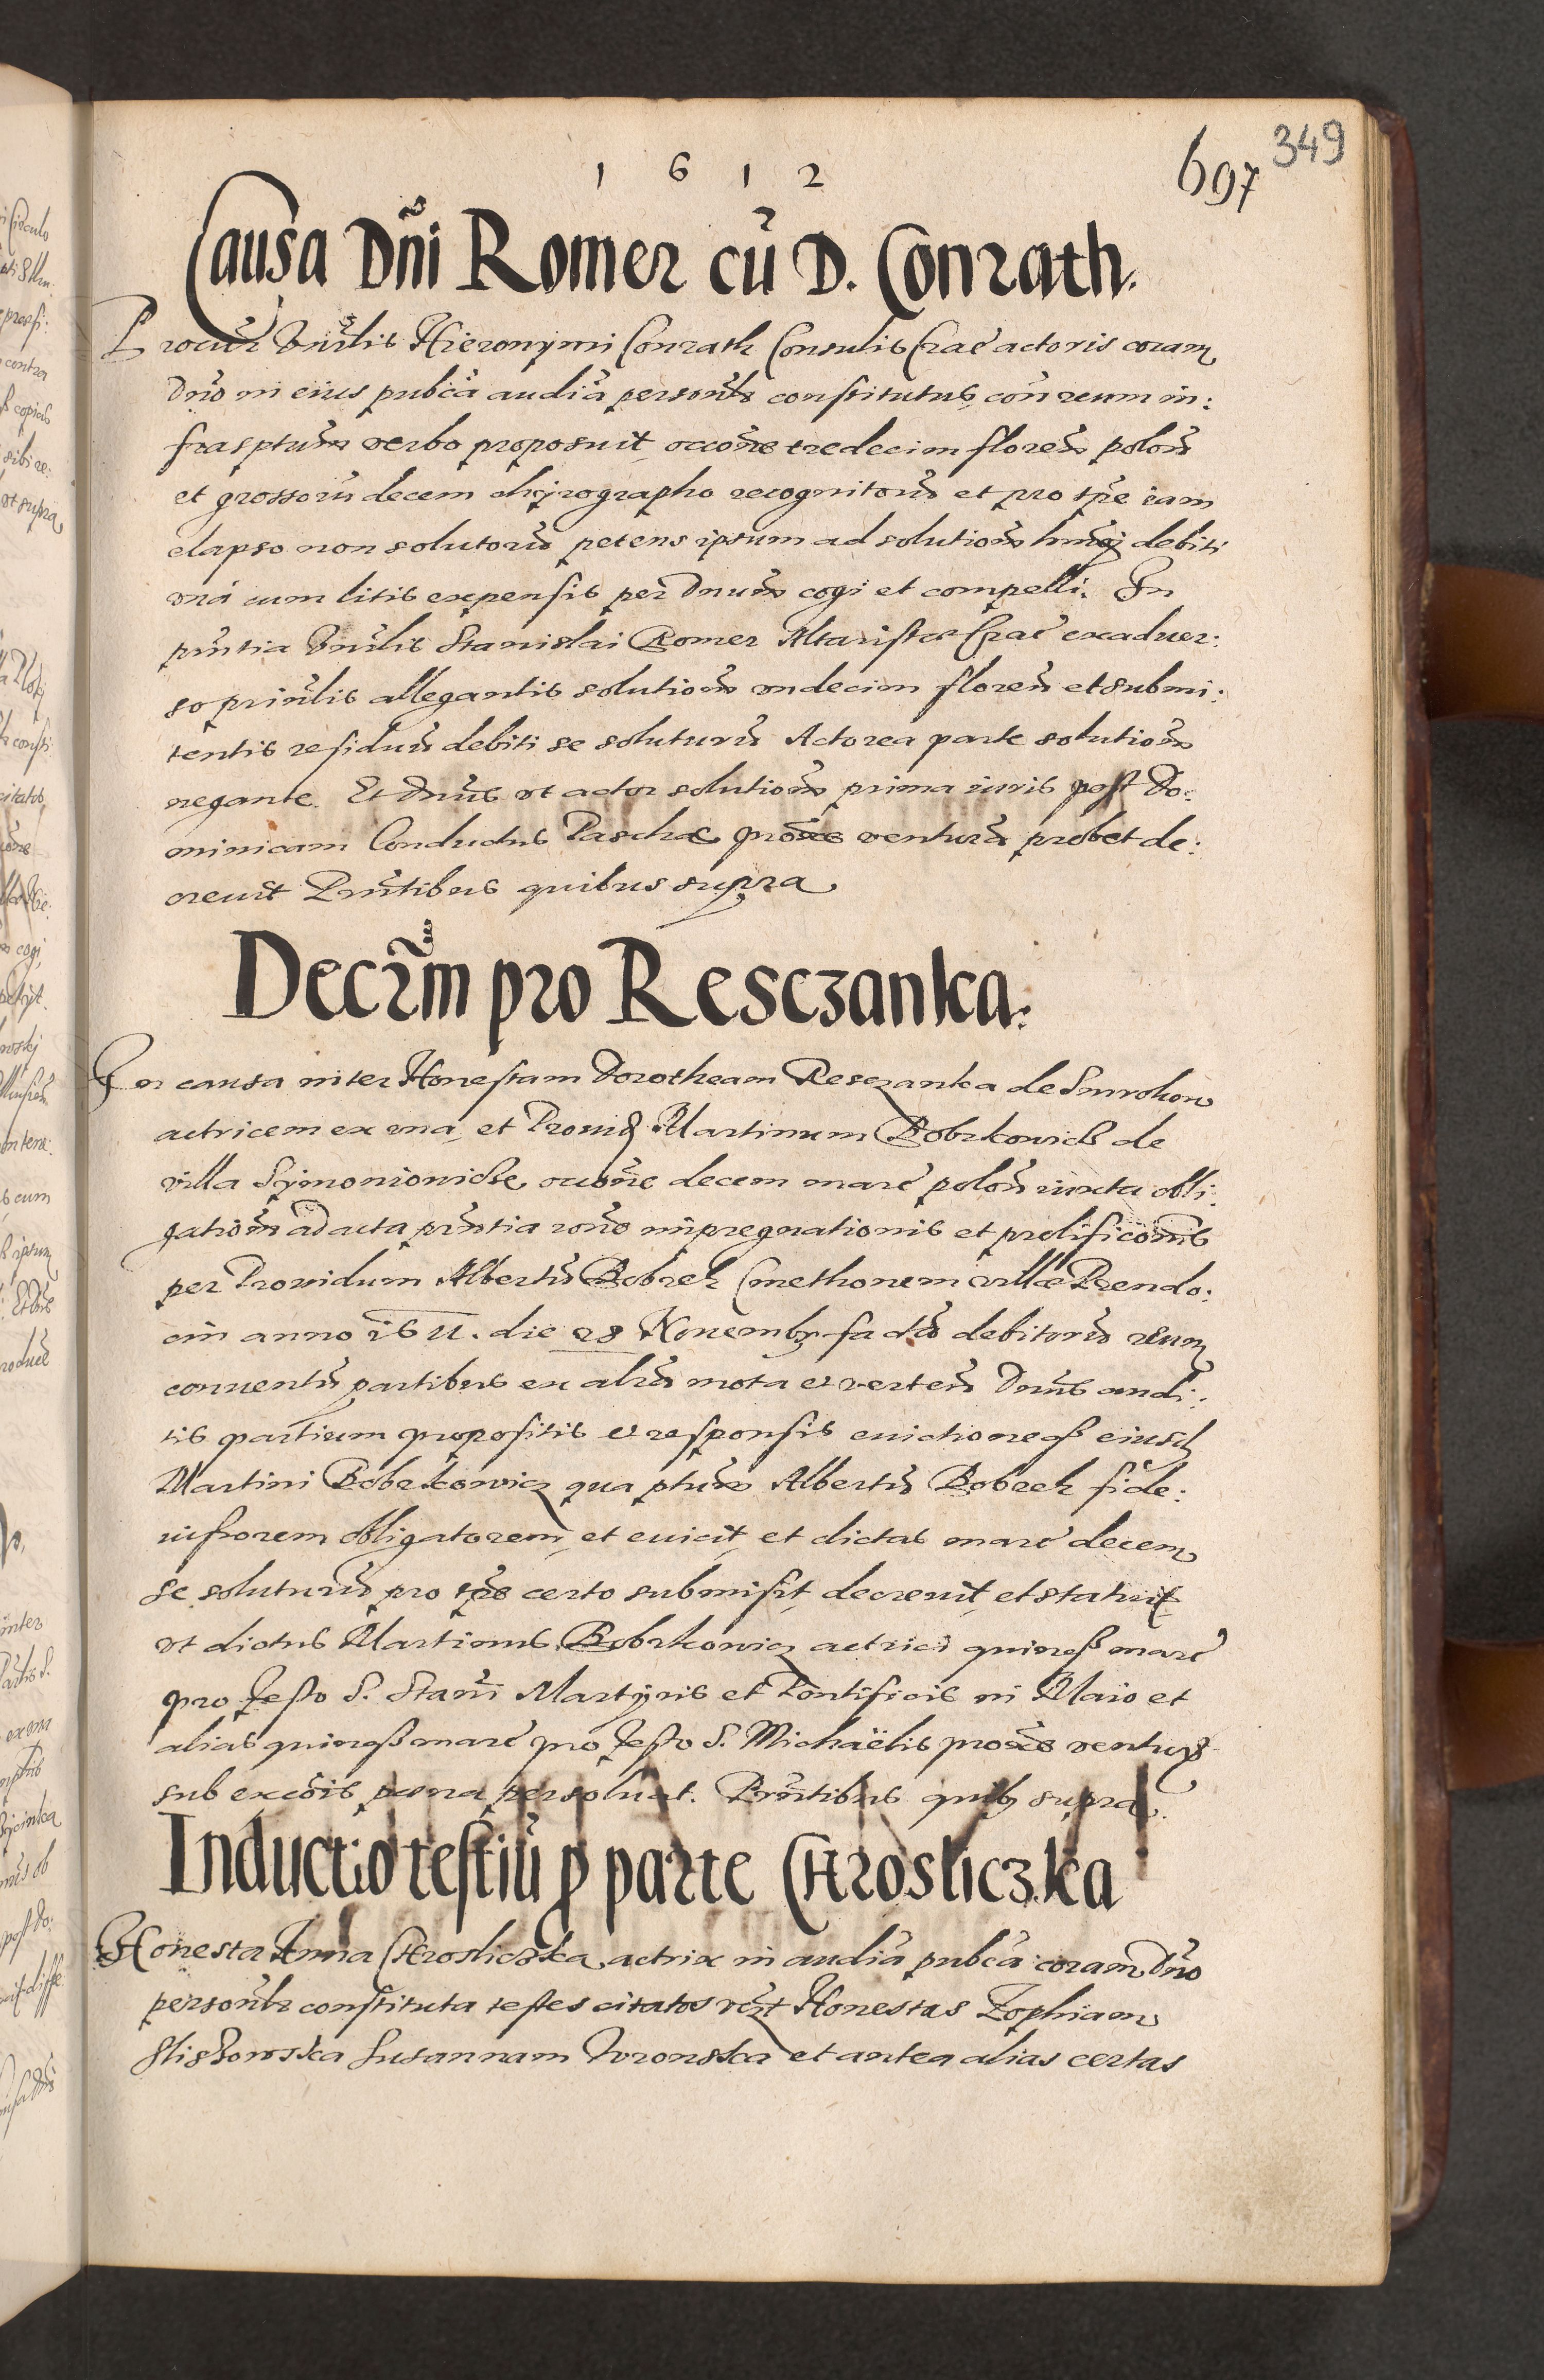 1 6 1 2
697
349
Causa Dñi Romer cũ D. Conrath.
Procur Vnrlis Hieronymi Conrath Consulis Crac actoris coram
Dño in eius pubca audia personlr constitutus con reum in:
frasptum verbo proposuit occone tredecim floren polon
et grossorũ decem chyrographo recognitorũ et pro tpe iam
elapso non solutorũ petens ipsum ad solutionem hmoi debiti
vna cum litis expensis per Dnum cogi et compelli. In
pñtia Vnrlis Stanislai Romer Altaristæ Crac exaduer:
so prinlis allegantis solutionem vndecim floren et submi:
tentis residuũ debiti se soluturũ Actorea parte solutionem
negante. Et Dnus vt actor solutionem prima iuris post Do:
minicam Conductus Paschæ proxe venturã probet de:
creuit Pñtibus quibus supra
Decrm pro Resczanka.
In causa inter Honestam Dorotheam Resczanka de Smrokow
actricem ex vna, et Prouid Martinum Bobrkowicz de
villa Szymoniowicze occone decem marc polon iuxta obli:
gationem ad acta pñtia rono impregnationis et prolificonis
per Prouidum Albertũ Bobrek Cmethonem villæ Prendo:
cin anno 1611. die 28 Nouembr factũ debitorũ reum
conuentũ partibus ex alia mota et verten Dnus audi:
tis partium propositis et responsis euictioneq eiusd
Martini Bobrkowicz qua ptum Albertũ Bobrek fide:
iussorem obligatorem et euicit, et dictas marc decem
se soluturũ pro tpe certo submisit, decreuit, et statuit
vt dictus Martinus Bobrkowicz actrici quinq marc
pro festo S. Stani Martyris et Pontificis in Maio et
alias quinq marc pro festo S. Michaëlis proxe ventur
sub excois pæna persoluat. Pñtibus quib supra.
Inductio testiũ p parte Chrosliczka
Honesta Anna Chrosliczka actrix in audia pubca coram Dño
personlr constituta testes citatos vczt Honestas Zophiam
Sliszowska Susannam Wronska et antea alias certas